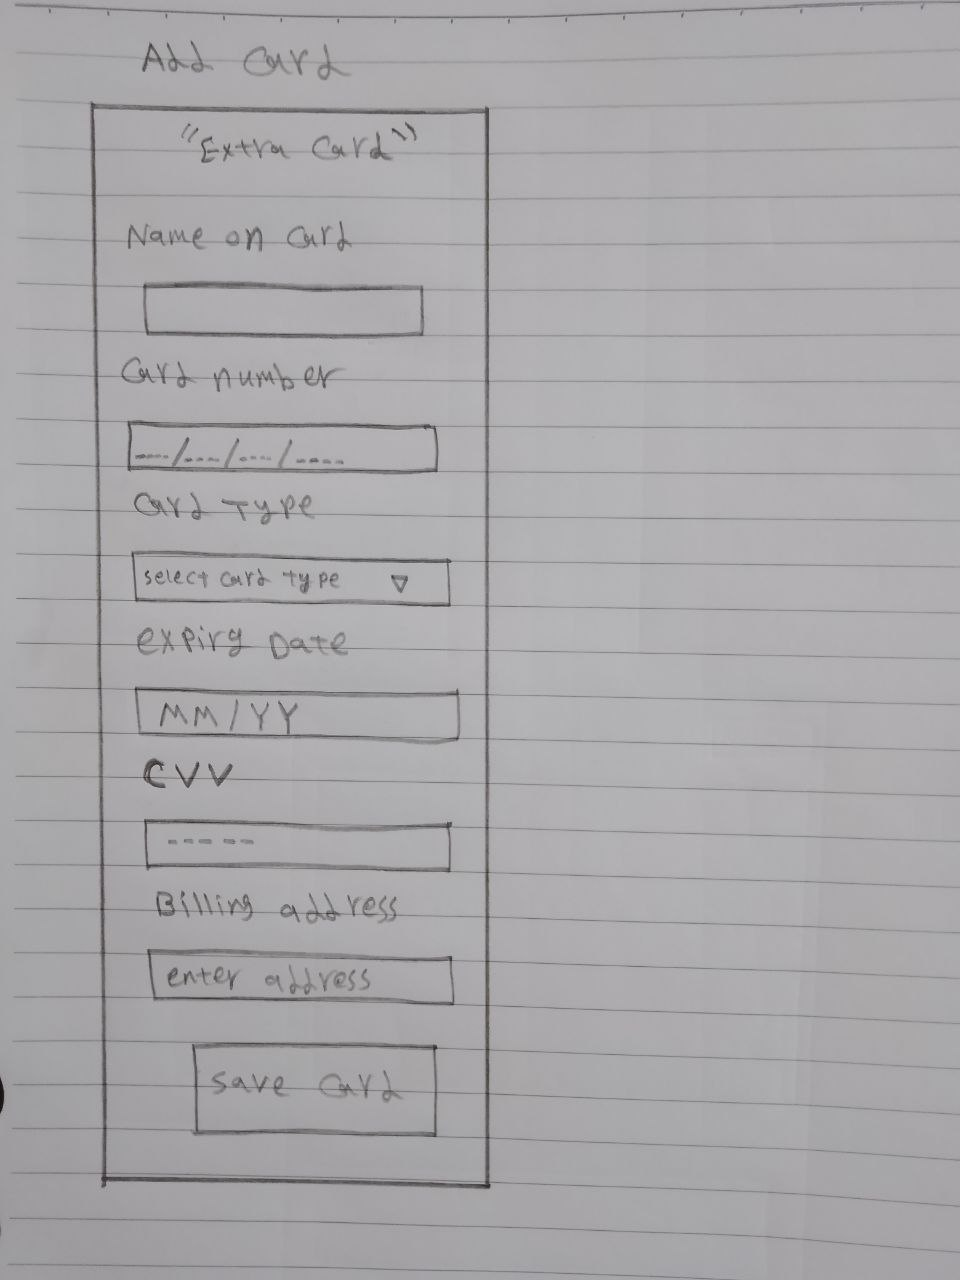 Add Card
"Extra Card"
Name on Card
Card number
----/----/----/----
Card Type
select card type ▽
expiry Date
MM/YY
CVV
-----
Billing address
enter address
Save Card